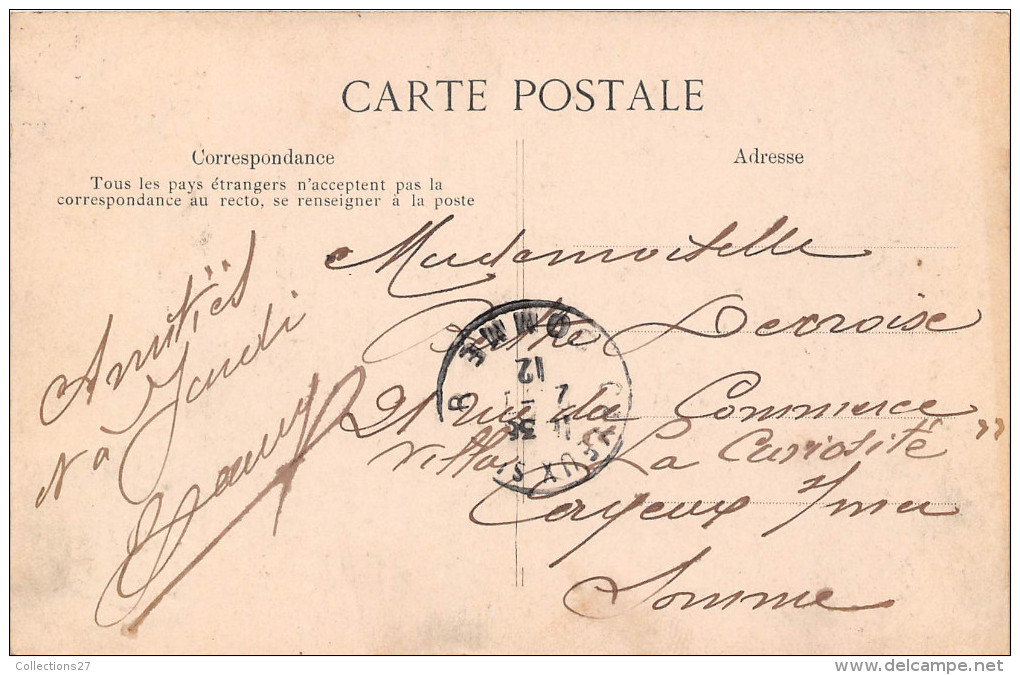 CARTE POSTALE
Correspondance
Tous les pays étrangers n'acceptent pas la
correspondance au recto, se renseigner à la poste
Adresse
Amitiés
à Jeudi
Mademoiselle
Devroise
21 rue du Commerce
Villa "La Curiosité"
Cayeux s/mer
Somme
CAYEUX S
SOMME
12
Collections27
www.delcampe.net